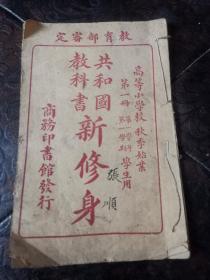 教育部審定
高等小學校秋季始業
第一册 第一學年 第一學期 學生用
共和國
教科書
新修身
張順
商務印書館發行